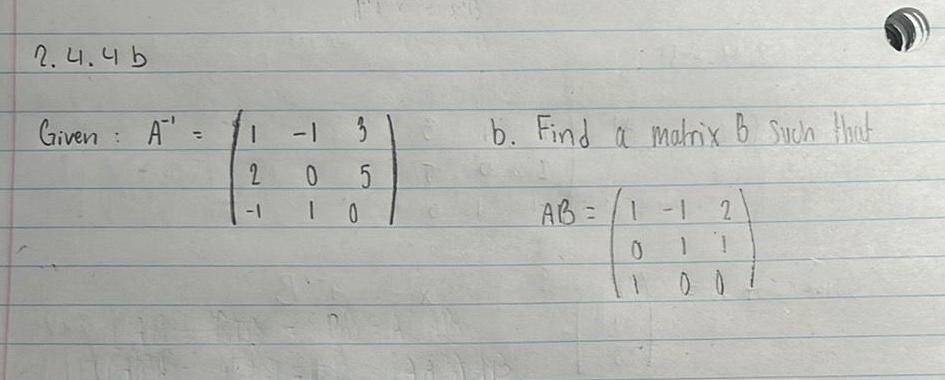 2.4.4 b
Given : A⁻¹ = (1 -1 3
2 0 5
-1 1 0)
b. Find a matrix B such that
AB = (1 -1 2
0 1 1
1 0 0)